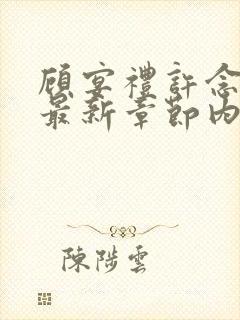 顾宴禮許念
最新章節內
陳陟雲